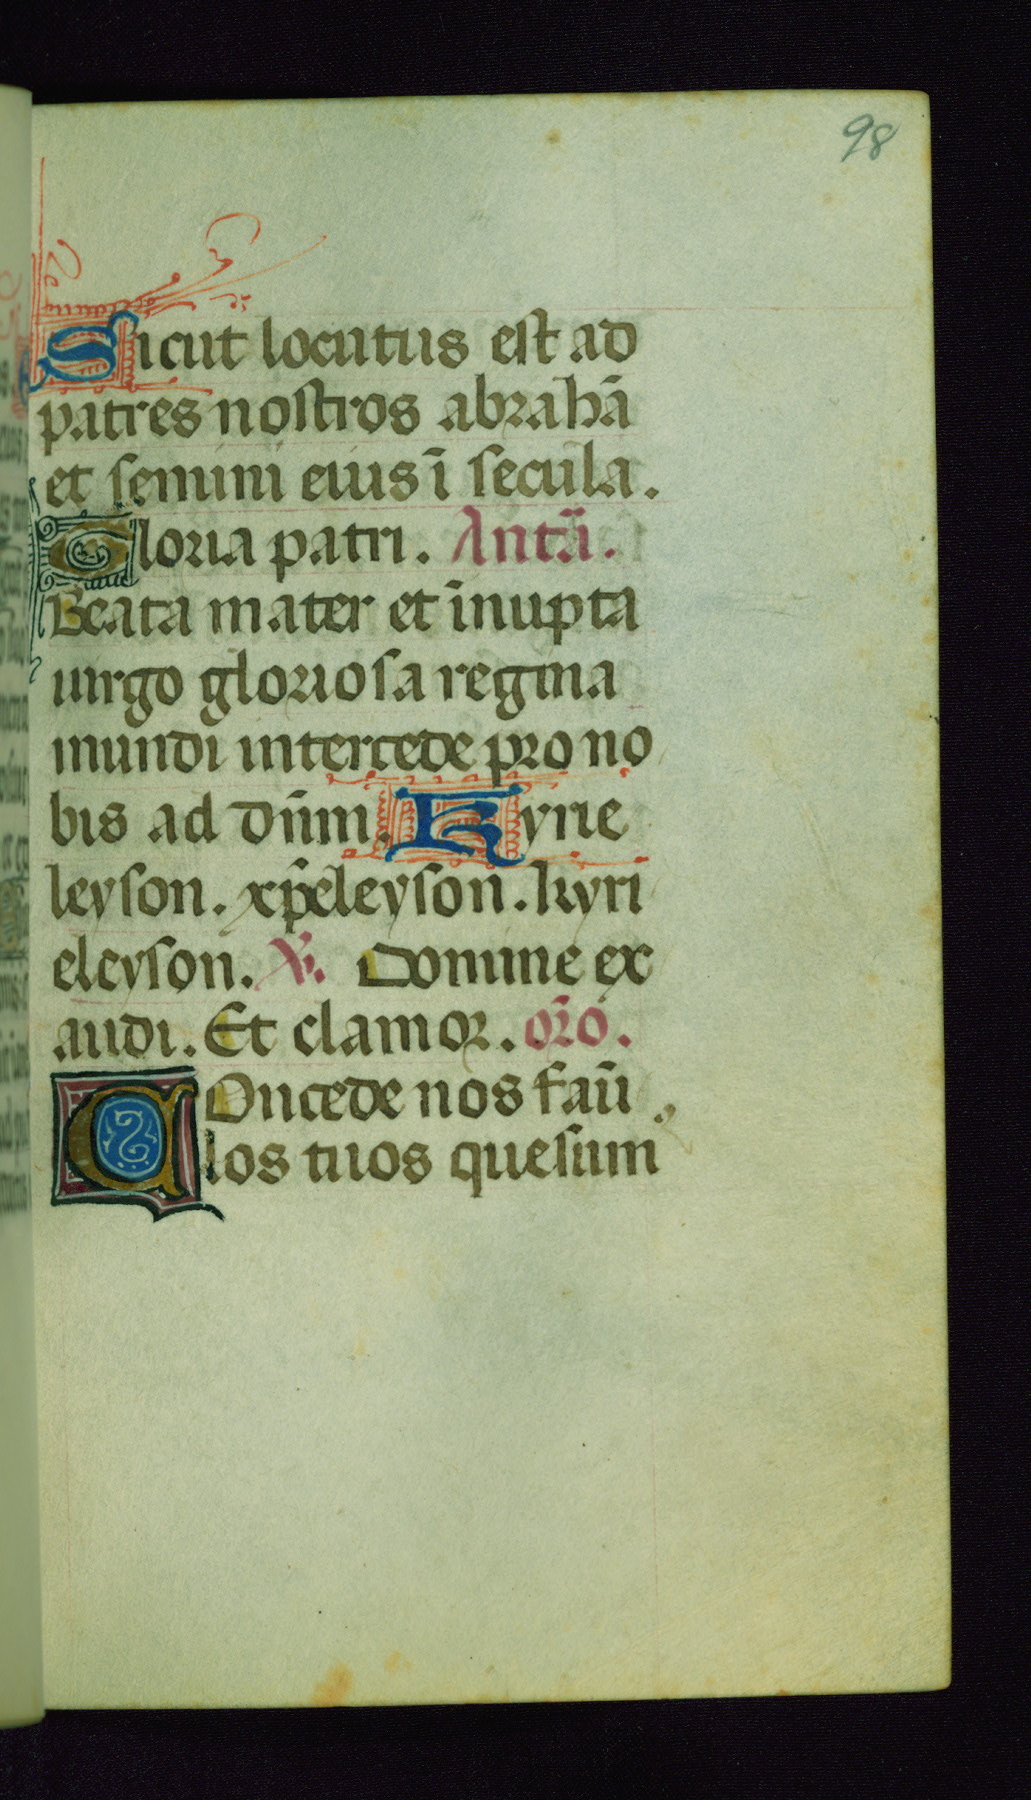 98
Sicut locutus est ad
patres nostros abrahā
et semini eius ī secula.
Gloria patri. Antā.
Beata mater et īnupta
uirgo gloriosa regina
mundi intercede pro no
bis ad dūm. Kyrie
leyson. xp̄eleyson. kyri
eleyson. V. Domine ex
audi. Et clamor. or̄o.
COncede nos famū
los tuos quesum